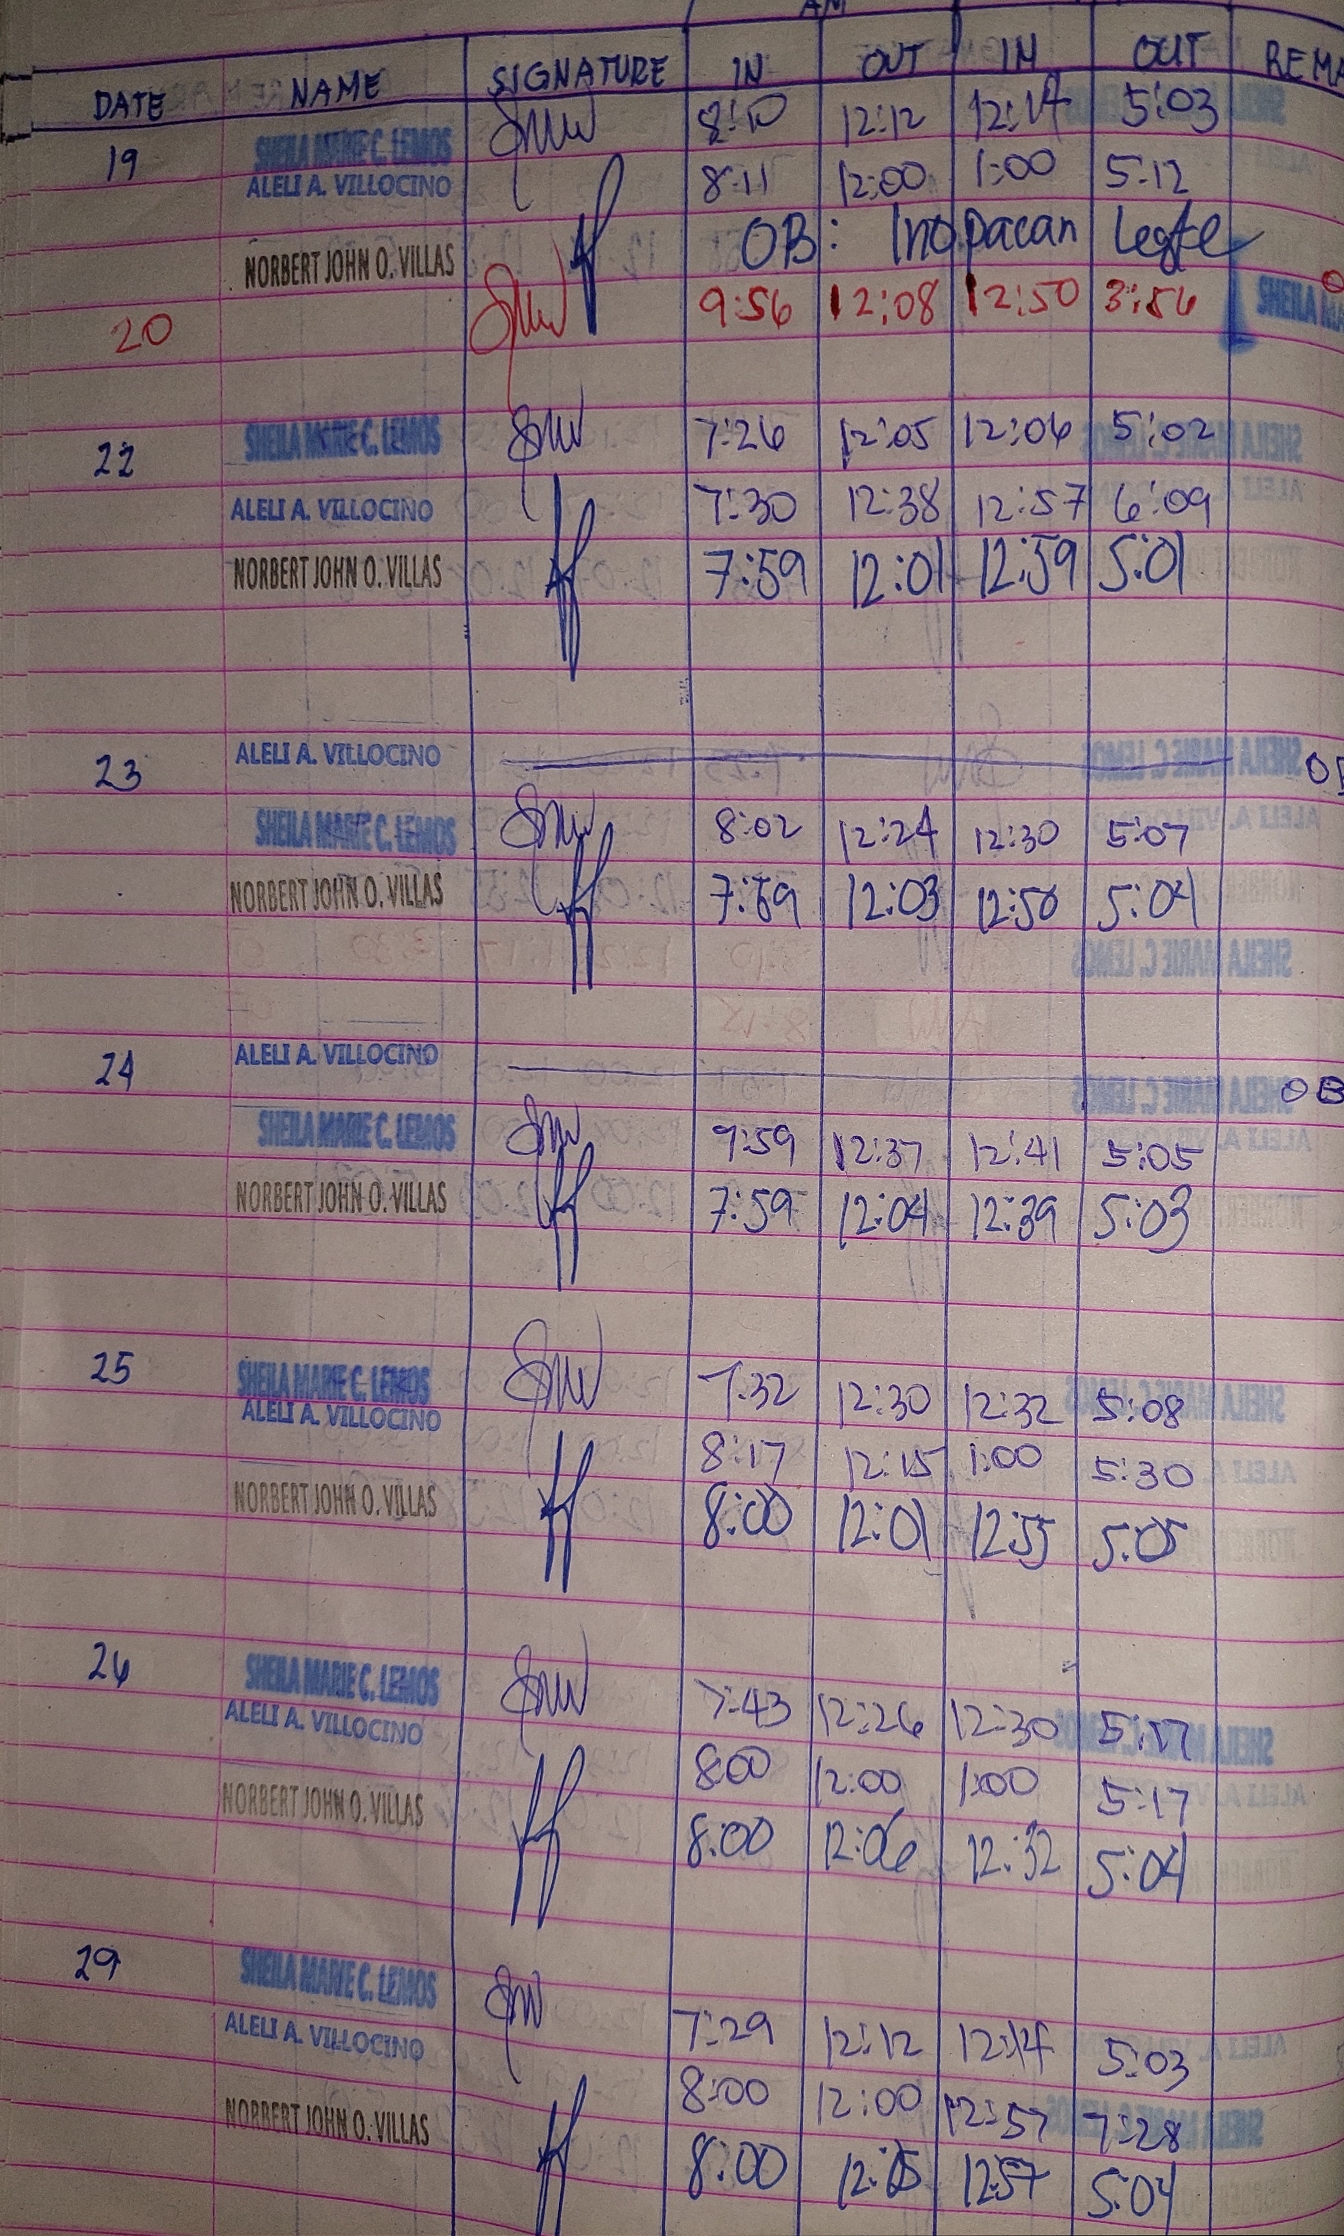 AM
DATE NAME SIGNATURE IN OUT IN OUT REMA
19 SHEILA MARIE C. LEMOS 8:10 12:12 12:14 5:03
ALELI A. VILLOCINO 8:11 12:00 1:00 5:12
NORBERT JOHN O. VILLAS OB: Inopacan Leyte
20 9:56 12:08 12:50 3:56 SHEILA MA
22 SHEILA MARIE C. LEMOS 7:26 12:05 12:06 5:02
ALELI A. VILLOCINO 7:30 12:38 12:57 6:09
NORBERT JOHN O. VILLAS 7:59 12:01 12:59 5:01
23 ALELI A. VILLOCINO
SHEILA MARIE C. LEMOS 8:02 12:24 12:30 5:07
NORBERT JOHN O. VILLAS 7:59 12:03 12:50 5:04
24 ALELI A. VILLOCINO OB
SHEILA MARIE C. LEMOS 9:59 12:37 12:41 5:05
NORBERT JOHN O. VILLAS 7:59 12:04 12:39 5:03
25 SHEILA MARIE C. LEMOS 7:32 12:30 12:32 5:08
ALELI A. VILLOCINO 8:17 12:15 1:00 5:30
NORBERT JOHN O. VILLAS 8:00 12:01 12:55 5:05
26 SHEILA MARIE C. LEMOS 7:43 12:26 12:30 5:17
ALELI A. VILLOCINO 8:00 12:00 1:00 5:17
NORBERT JOHN O. VILLAS 8:00 12:06 12:32 5:04
29 SHEILA MARIE C. LEMOS 7:29 12:12 12:14 5:03
ALELI A. VILLOCINO 8:00 12:00 12:57 7:28
NORBERT JOHN O. VILLAS 8:00 12:05 12:57 5:04